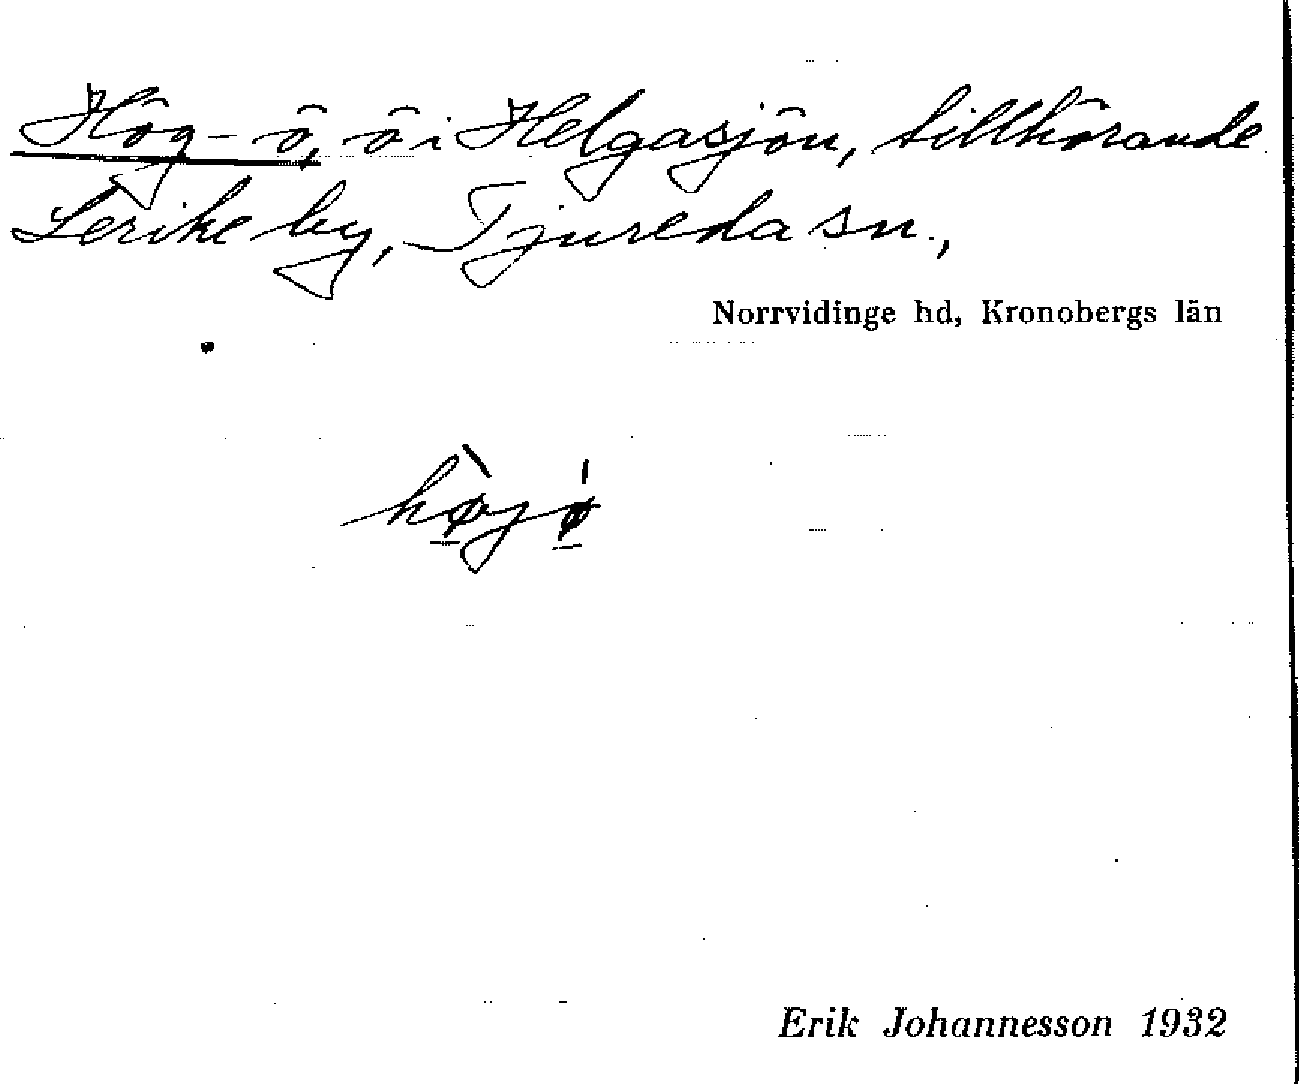 Hög-ö, ö i Helgasjön, tillhörande
Lerike by, Tjureda sn.,
Norrvidinge hd, Kronobergs län
hø̱̀jǿ̱
Erik Johannesson 1932